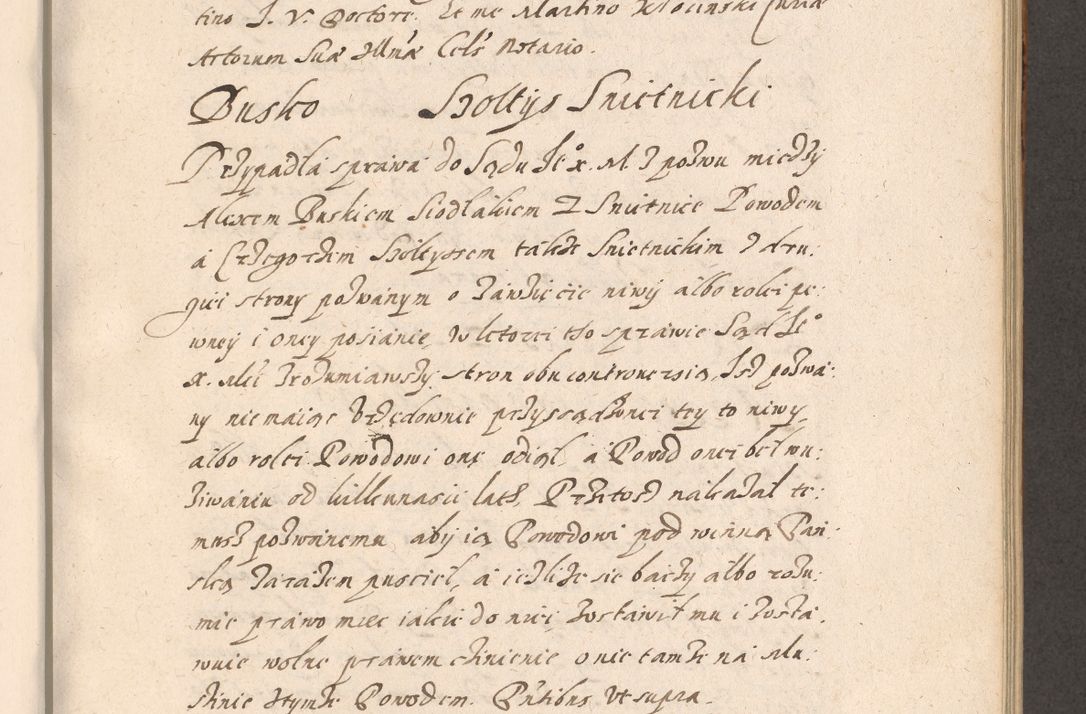 tino J. V. Doctore. Et me Martino Kłocinski Curiæ
Actorum Suæ Illmæ Cels. Notario.
Busko Szołtys Snietnicki
Przypadła sprawa do Sądu Je° x. M. z pozwu miedzy
Alexem Buskiem Siodlakiem z Snietnice Powodem
a Grzegorzem Szołtysem także Snietnickim z dru:
giei strony pozwanym o zawziecie niwy albo rolei pe:
wney i oney posianie, W ktorei tho sprawie Sąd Je°
x. Mći Zrozumiawszy stron obu controuersią, Isz pozwa:
ny nie maiąc Vrzędownie przysądzonei tey to niwy,
albo rolei Powodowi one odiął, a Powod onei beł wu:
ziwaniu od kilkunascie lath, Przetosz nakazał te:
musz pozwanemu aby ią Powodowi pod winną Pan:
ską zarazem pusciel, a iezliże sie baczy albo rozu:
mie prawo miec iakie do niei, zostawił mu i zosta:
wuie wolne prawem czinienie o nie tamże na Mu:
szinie stymże Powodem. Pntibus Vt supra.